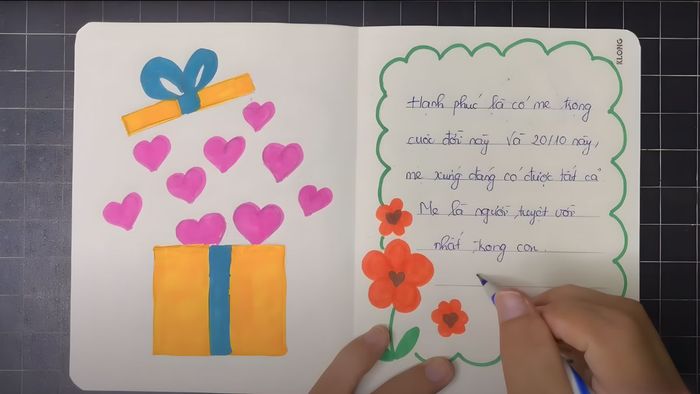 Hạnh phúc là có mẹ trong
cuộc đời này và 20/10 này,
mẹ xứng đáng có được tất cả
Mẹ là người tuyệt vời
nhất trong con.
KLONG